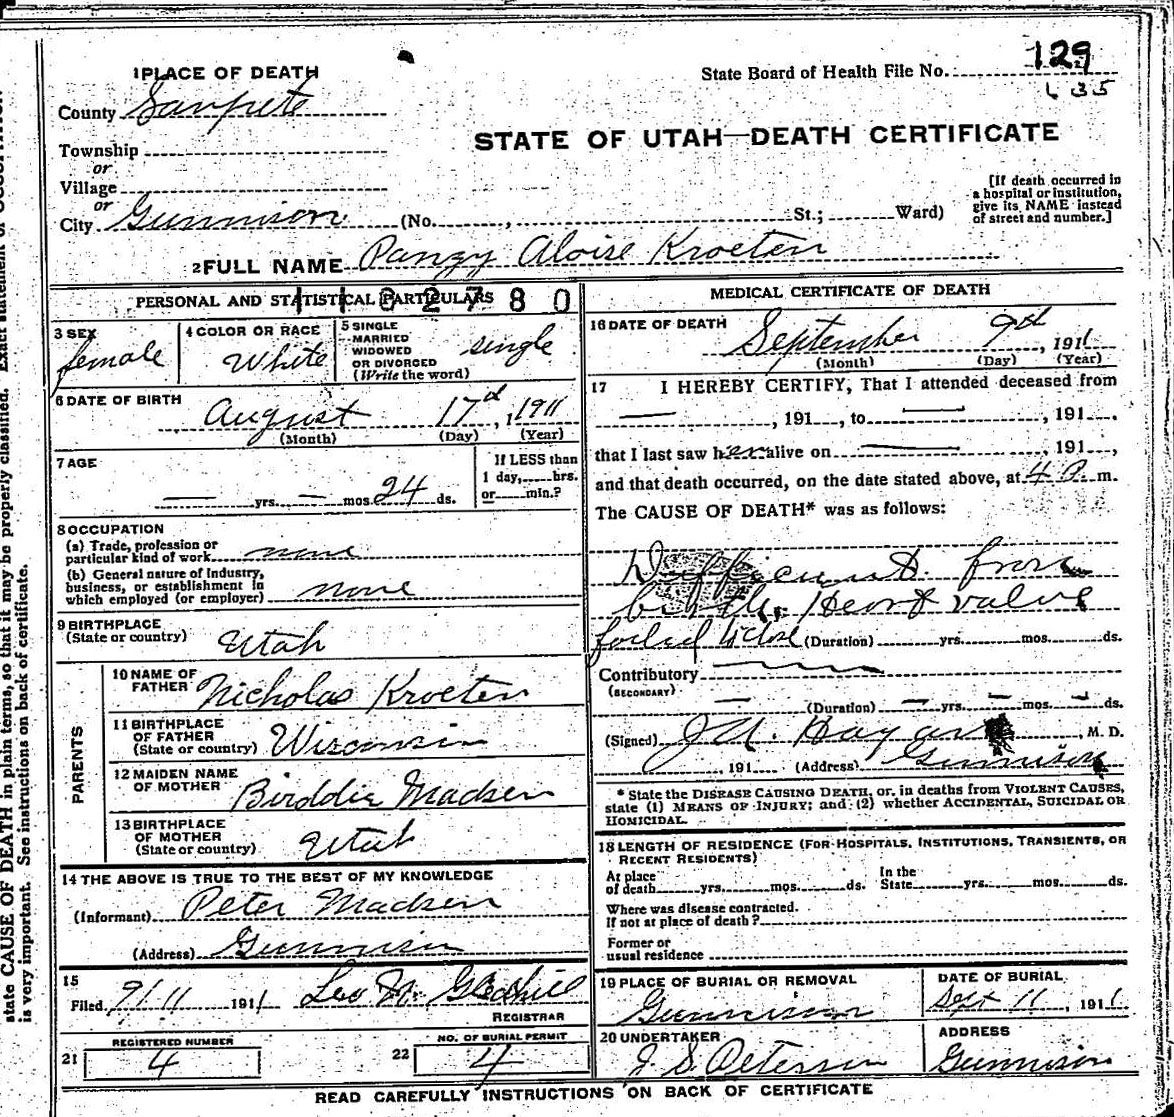 129
State Board of Health File No.
L 35
1 PLACE OF DEATH
County Sanpete
STATE OF UTAH—DEATH CERTIFICATE
Township
or
Village
or
City Gunnison (No. , St.; Ward)
[If death occurred in
a hospital or institution,
give its NAME instead
of street and number.]
2 FULL NAME Panzy Aloise Kroeten
PERSONAL AND STATISTICAL PARTICULARS
1102780
3 SEX
female
4 COLOR OR RACE
White
5 SINGLE
MARRIED
WIDOWED
OR DIVORCED
(Write the word)
single
6 DATE OF BIRTH
August 17d, 1911
(Month) (Day) (Year)
7 AGE
— yrs. — mos. 24 ds.
If LESS than
1 day, hrs.
or min.?
8 OCCUPATION
(a) Trade, profession or
particular kind of work none
(b) General nature of industry,
business, or establishment in
which employed (or employer) none
9 BIRTHPLACE
(State or country) Utah
PARENTS
10 NAME OF
FATHER Nicholas Kroeten
11 BIRTHPLACE
OF FATHER
(State or country) Wisconsin
12 MAIDEN NAME
OF MOTHER Birddie Madsen
13 BIRTHPLACE
OF MOTHER
(State or country) Utah
14 THE ABOVE IS TRUE TO THE BEST OF MY KNOWLEDGE
(Informant) Peter Madsen
(Address) Gunnison
15
Filed 9/11 1911 Leo M. Gledhill
REGISTRAR
21 REGISTERED NUMBER
4
22 NO. OF BURIAL PERMIT
4
MEDICAL CERTIFICATE OF DEATH
16 DATE OF DEATH
September 9th, 1911
(Month) (Day) (Year)
17 I HEREBY CERTIFY, That I attended deceased from
—, 191 , to —, 191 .
that I last saw her alive on — , 191 ,
and that death occurred, on the date stated above, at 4 P. m.
The CAUSE OF DEATH* was as follows:
from
birth. Heart valve
failed to close (Duration) yrs. mos. ds.
Contributory —
(SECONDARY)
— (Duration) — yrs. — mos. — ds.
(Signed) , M. D.
, 191 (Address) Gunnison
* State the DISEASE CAUSING DEATH, or, in deaths from VIOLENT CAUSES,
state (1) MEANS OF INJURY; and (2) whether ACCIDENTAL, SUICIDAL OR
HOMICIDAL.
18 LENGTH OF RESIDENCE (FOR HOSPITALS, INSTITUTIONS, TRANSIENTS, OR
RECENT RESIDENTS)
At place
of death yrs. mos. ds.
In the
State yrs. mos. ds.
Where was disease contracted.
If not at place of death?
Former or
usual residence
19 PLACE OF BURIAL OR REMOVAL
Gunnison
DATE OF BURIAL
Sept 11, 1911.
20 UNDERTAKER
J. S. Petersen
ADDRESS
Gunnison
READ CAREFULLY INSTRUCTIONS ON BACK OF CERTIFICATE
state CAUSE OF DEATH in plain terms, so that it may be properly classified. Exact statement of OCCUPATION
is very important. See instructions on back of certificate.